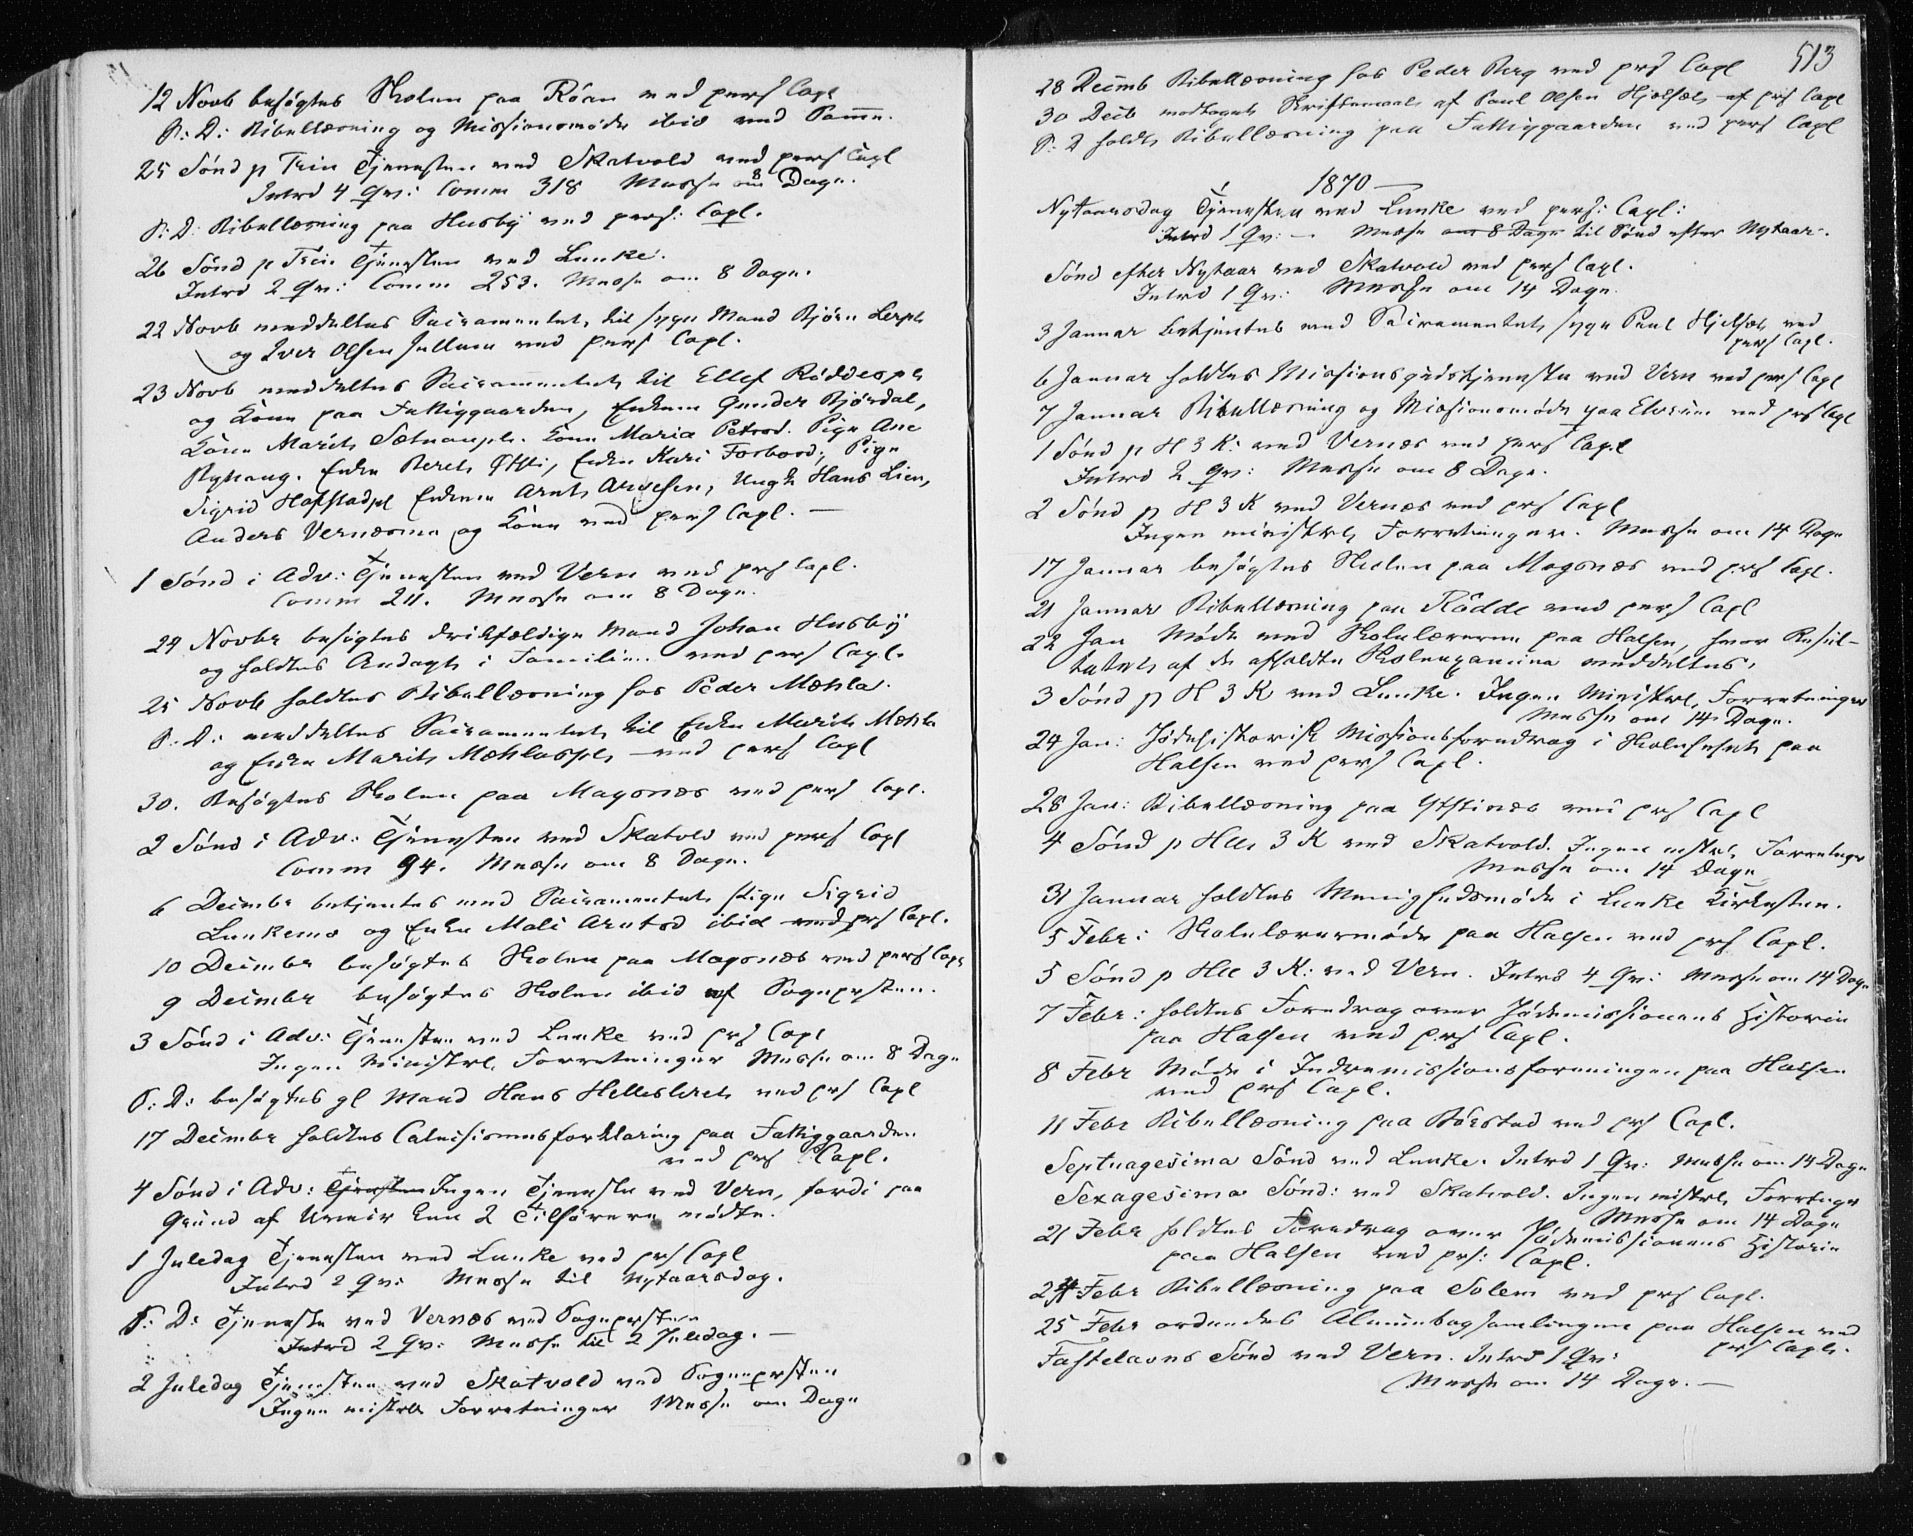 12 Novb besøgtes Skolen paa Røen ved pers Capl
S: D: Bibellæsning og Missionsmøde ibid ved Samme.
25 Sønd p Trin Tjenesten ved Skatvold ved pers Capl
Introd 4 Qv: Comm 318 Messe om 8 Dage.
S: D: Bibellæsning paa Husby ved pers: Capl.
26 Sønd p Trin Tjenesten ved Lunke.
Introd 2 Qv: Comm 253. Messe om 8 Dage.
22 Novb meddeltes Sacramentet til syge Mand Bjørn
og Iver Olsen ved pers Capl.
23 Novb meddeltes Sacramentet til Ellef
og Kone paa Fattiggaarden, Enkem Gunder Bjørdal,
Kone Marit Kone Maria Petrsd. Pige Ane
Enke Beret Enke Kari Forbord, Pige
Sigrid Hofstadpl Enkem Arnt Arnesen, Ungk Hans Lien,
Anders og Kone ved pers Capl. —
1 Sønd i Adv: Tjenesten ved Vern ved prs Capl.
Comm 211. Messe om 8 Dage.
24 Novbr besøgtes Mand Johan Husby
og holdtes Andagt i Familien ved pers Capl.
25 Novb holdtes Bibellæsning hos Peder Mæhla.
S: D: meddeltes Sacramentet til Enke Marit Mæhla
og Enke Marit Mæhlaspl ved pers Capl
30. Besøgtes Skolen paa Magonæs ved pers Capl.
2 Sønd i Adv: Tjenesten ved Skatvold ved pers Capl
Comm 94. Messe om 8 Dage.
6 Decembr betjentes med Sacramentet Pige Sigrid
Lunkemo og Enke Mali Arntsd ibid ved prs Capl.
10 Decembr besøgtes Skolen paa Magonæs ved pers Capl
9 Decembr besøgtes Skolen ibid af Sognepresten.
3 Sønd i Adv: Tjenesten ved Lunke ved prs Capl
Ingen Ministrl Forretninger Messe om 8 Dage
S: D: besøgtes gl Mand Hans ved prs Capl
17 Decembr holdtes Catecismusforklaring paa Fattiggaarden
ved prs Capl.
4 Sønd i Adv: Tjenesten Ingen Tjeneste ved Vern, fordi paa
Grund af Uveir kun 2 Tilhørere mødte.
1 Juledag Tjenesten ved Lunke ved prs Capl
Introd 2 Qv: Messe til Nytaarsdag.
S: D: Tjeneste ved Vernæs ved Sognepresten
Introd 2 Qv: Messe til 2 Juledag. —
2 Juledag Tjenesten ved Skatvold ved Sognepresten
Ingen mistrle Forretninger Messe om Dage
513
28 Decemb Bibellæsning hos Peder Berg ved prs Capl
30 Decb modtoges Skriftemaal af Paul Olsen af prs Capl
S: D holdt Bibellæsning paa Fattiggaarden ved pers Capl
1870 —
Nytaarsdag Tjenesten ved Lunke ved pers: Capl:
Introd 1 Qv: — Messe om 8 Dage til Sønd efter Nytaar.
Sønd efter Nytaar ved Skatvold ved pers Capl.
Introd 1 Qv: Messe om 14 Dage.
3 Januar betjentes med Sacramentet syge Paul ved
pers Capl.
6 Januar holdtes Missionsgudstjeneste ved Vern ved prs Capl
7 Januar Bibellæsning og Missionsmøde paa Elvrum ved prs Capl
1 Sønd p H 3 K: ved Vernæs ved pers Capl
Introd 2 Qv: Messe om 8 Dage.
2 Sønd p H 3 K ved Vernæs ved prs Capl
Ingen ministrl Forretninger. Messe om 14 Dage
17 Januar besøgtes Skolen paa Magonæs ved prs Capl.
21 Januar Bibellæsning paa Rødde ved pers Capl
22 Jan Møde med Skolelærerne paa Halsen, hvor Resul-
tatet af de afholdte Skoleexamina meddeltes.
3 Sønd p H 3 K ved Lunke. Ingen Ministrl Forretninger
Messe om 14 Dage.
24 Jan: Jødehistorisk Missionsforedrag i Skolehuset paa
Halsen ved pers Capl.
28 Jan: Bibellæsning paa ved prs Capl
4 Sønd p Hll 3 K ved Skatvold. Ingen mstrl Forretnger
Messe om 14 Dage
31 Januar holdtes Menighedsmøde i Lunke Kirkestue.
5 Febr: Skolelærermøde paa Halsen ved prs Capl.
5 Sønd p Hll 3 K: ved Vern. Introd 4 Qv: Messe om 14 Dage
7 Febr: holdtes Foredrag over Jødemissionens Historie
paa Halsen ved prs Capl.
8 Febr Møde i Indremissionsforeningen paa Halsen
ved prs Capl.
11 Febr Bibellæsning paa ved prs Capl.
Septuagesima Sønd ved Lunke. Introd 1 Qv: Messe om 14 Dage
Sexagesima Sønd: ved Skatvold. Ingen mistrl Forretnger
Messe om 14 Dage
21 Febr holdtes Foredrag over Jødemissionens Historie
paa Halsen ved prs: Capl.
24 Febr Bibellæsning paa Solem ved prs Capl.
25 Febr ordnedes Almuebogsamlingen paa Halsen ved
prs Capl.
Fastelavns Sønd ved Vern. Introd 1 Qv:
Messe om 14 Dage. —